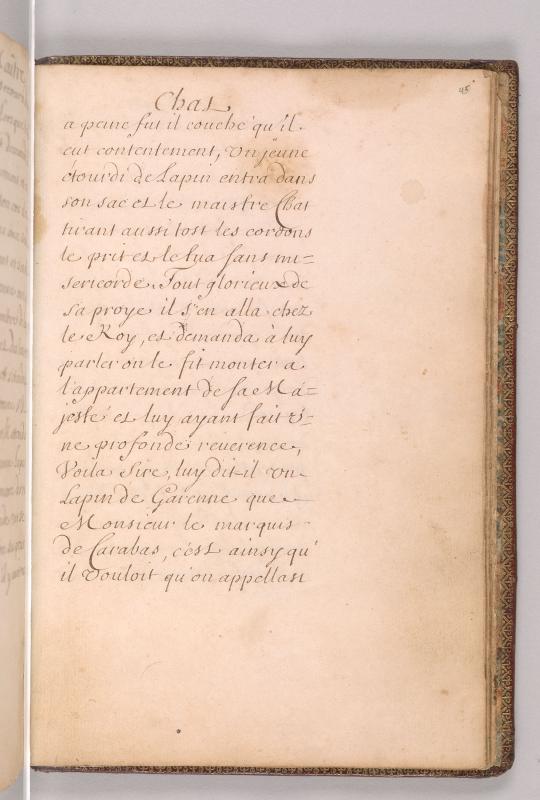 45
Chat
a peine fut il couché qu'il
eut contentement, Un jeune
étourdi de Lapin entra dans
son sac et le maistre Chat
tirant aussi tost les cordons
le prit et le tua sans mi=
sericorde. Tout glorieux de
sa proye il s'en alla chez
le Roy, et demanda à luy
parler on le fit monter a
l'appartement de sa Ma=
jesté et luy ayant fait U=
ne profonde reuerence,
Voila Sire, luy dit-il Un
Lapin de Garenne que
Monsieur le marquis
de Carabas, c'est ainsy qu'
il Vouloit qu'on appellast